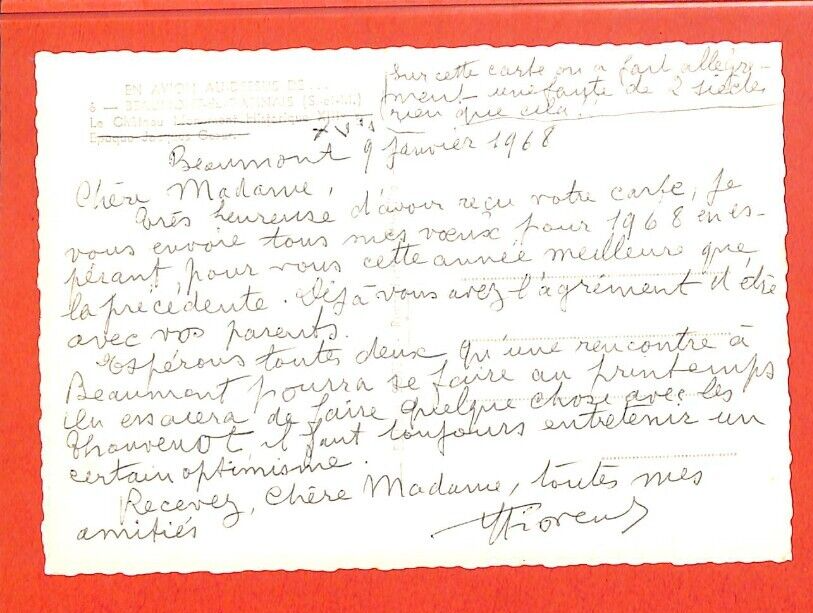 EN AVION AU-DESSUS DE...
6 — BEAUMONT-DU-GATINAIS (S.-et-M.)
Le Château
Epoque Jacques Cœur.
XVIe
Sur cette carte on a fait allégre-
ment une faute de 2 siècles
rien que cela!!
Beaumont 9 janvier 1968
Chère Madame,
Très heureuse d'avoir reçu votre carte, je
vous envoie tous mes vœux pour 1968 en es-
pérant, pour vous cette année meilleure que
la précédente. Déjà vous avez l'agrément d'être
avec vos parents.
Espérons toutes deux qu'une rencontre à
Beaumont pourra se faire au printemps
On essaiera de faire quelque chose avec les
Thouvenot, il faut toujours entretenir un
certain optimisme.
Recevez, Chère Madame, toutes mes
amitiés